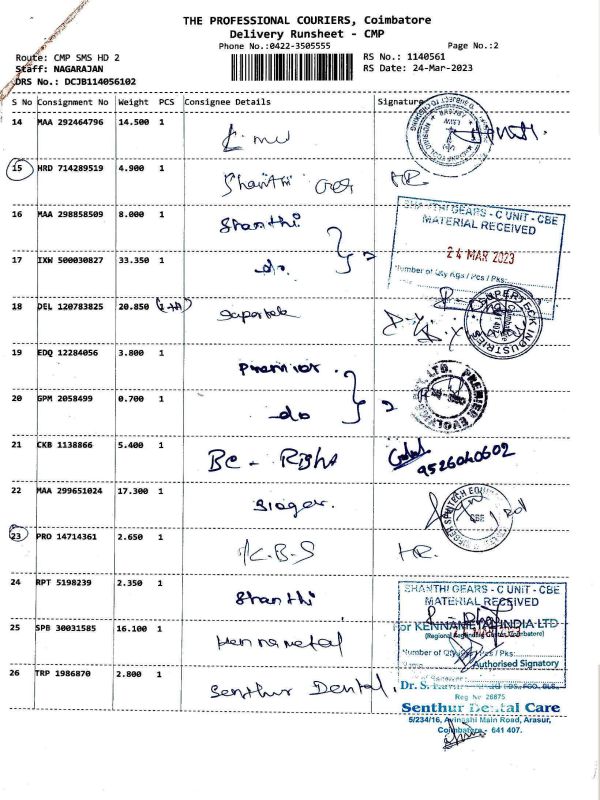 THE PROFESSIONAL COURIERS, Coimbatore
Delivery Runsheet - CMP
Phone No.:0422-3505555
Page No.:2
Route: CMP SMS HD 2
RS No.: 1140561
Staff: NAGARAJAN
RS Date: 24-Mar-2023
DRS No.: DCJB114056102
S No Consignment No Weight PCS Consignee Details Signature
14 MAA 292464796 14.500 1
15 HRD 714289519 4.900 1
Shanthi Gear HR
16 MAA 298858509 8.000 1
Shanthi
17 IXW 500030827 33.350 1
do
SHANTHI GEARS - C UNIT - CBE
MATERIAL RECEIVED
24 MAR 2023
Number of Qty Kgs / Pcs / Pks:
18 DEL 120783825 20.850
SUPERTECK INDUSTRIES
19 EDQ 12284056 3.800 1
Premier
20 GPM 2058499 0.700 1
do 2
PREMIER EVOLVICS
21 CKB 1138866 5.400 1
BE - Rights
9526040602
22 MAA 299651024 17.300 1
CBE
23 PRO 14714361 2.650 1
K.B.S HR.
24 RPT 5198239 2.350 1
Shanthi
SHANTHI GEARS - C UNIT - CBE
MATERIAL RECEIVED
25 SPB 30031585 16.100 1
Kennametal
For KENNAMETAL INDIA LTD
(Regional Coimbatore)
Number of Qty Pcs / Pks:
Authorised Signatory
26 TRP 1986870 2.800 1
Senthur Dental.
Dr. S.
Reg No 26875
Senthur Dental Care
5/234/16, Avinashi Main Road, Arasur,
Coimbatore - 641 407.